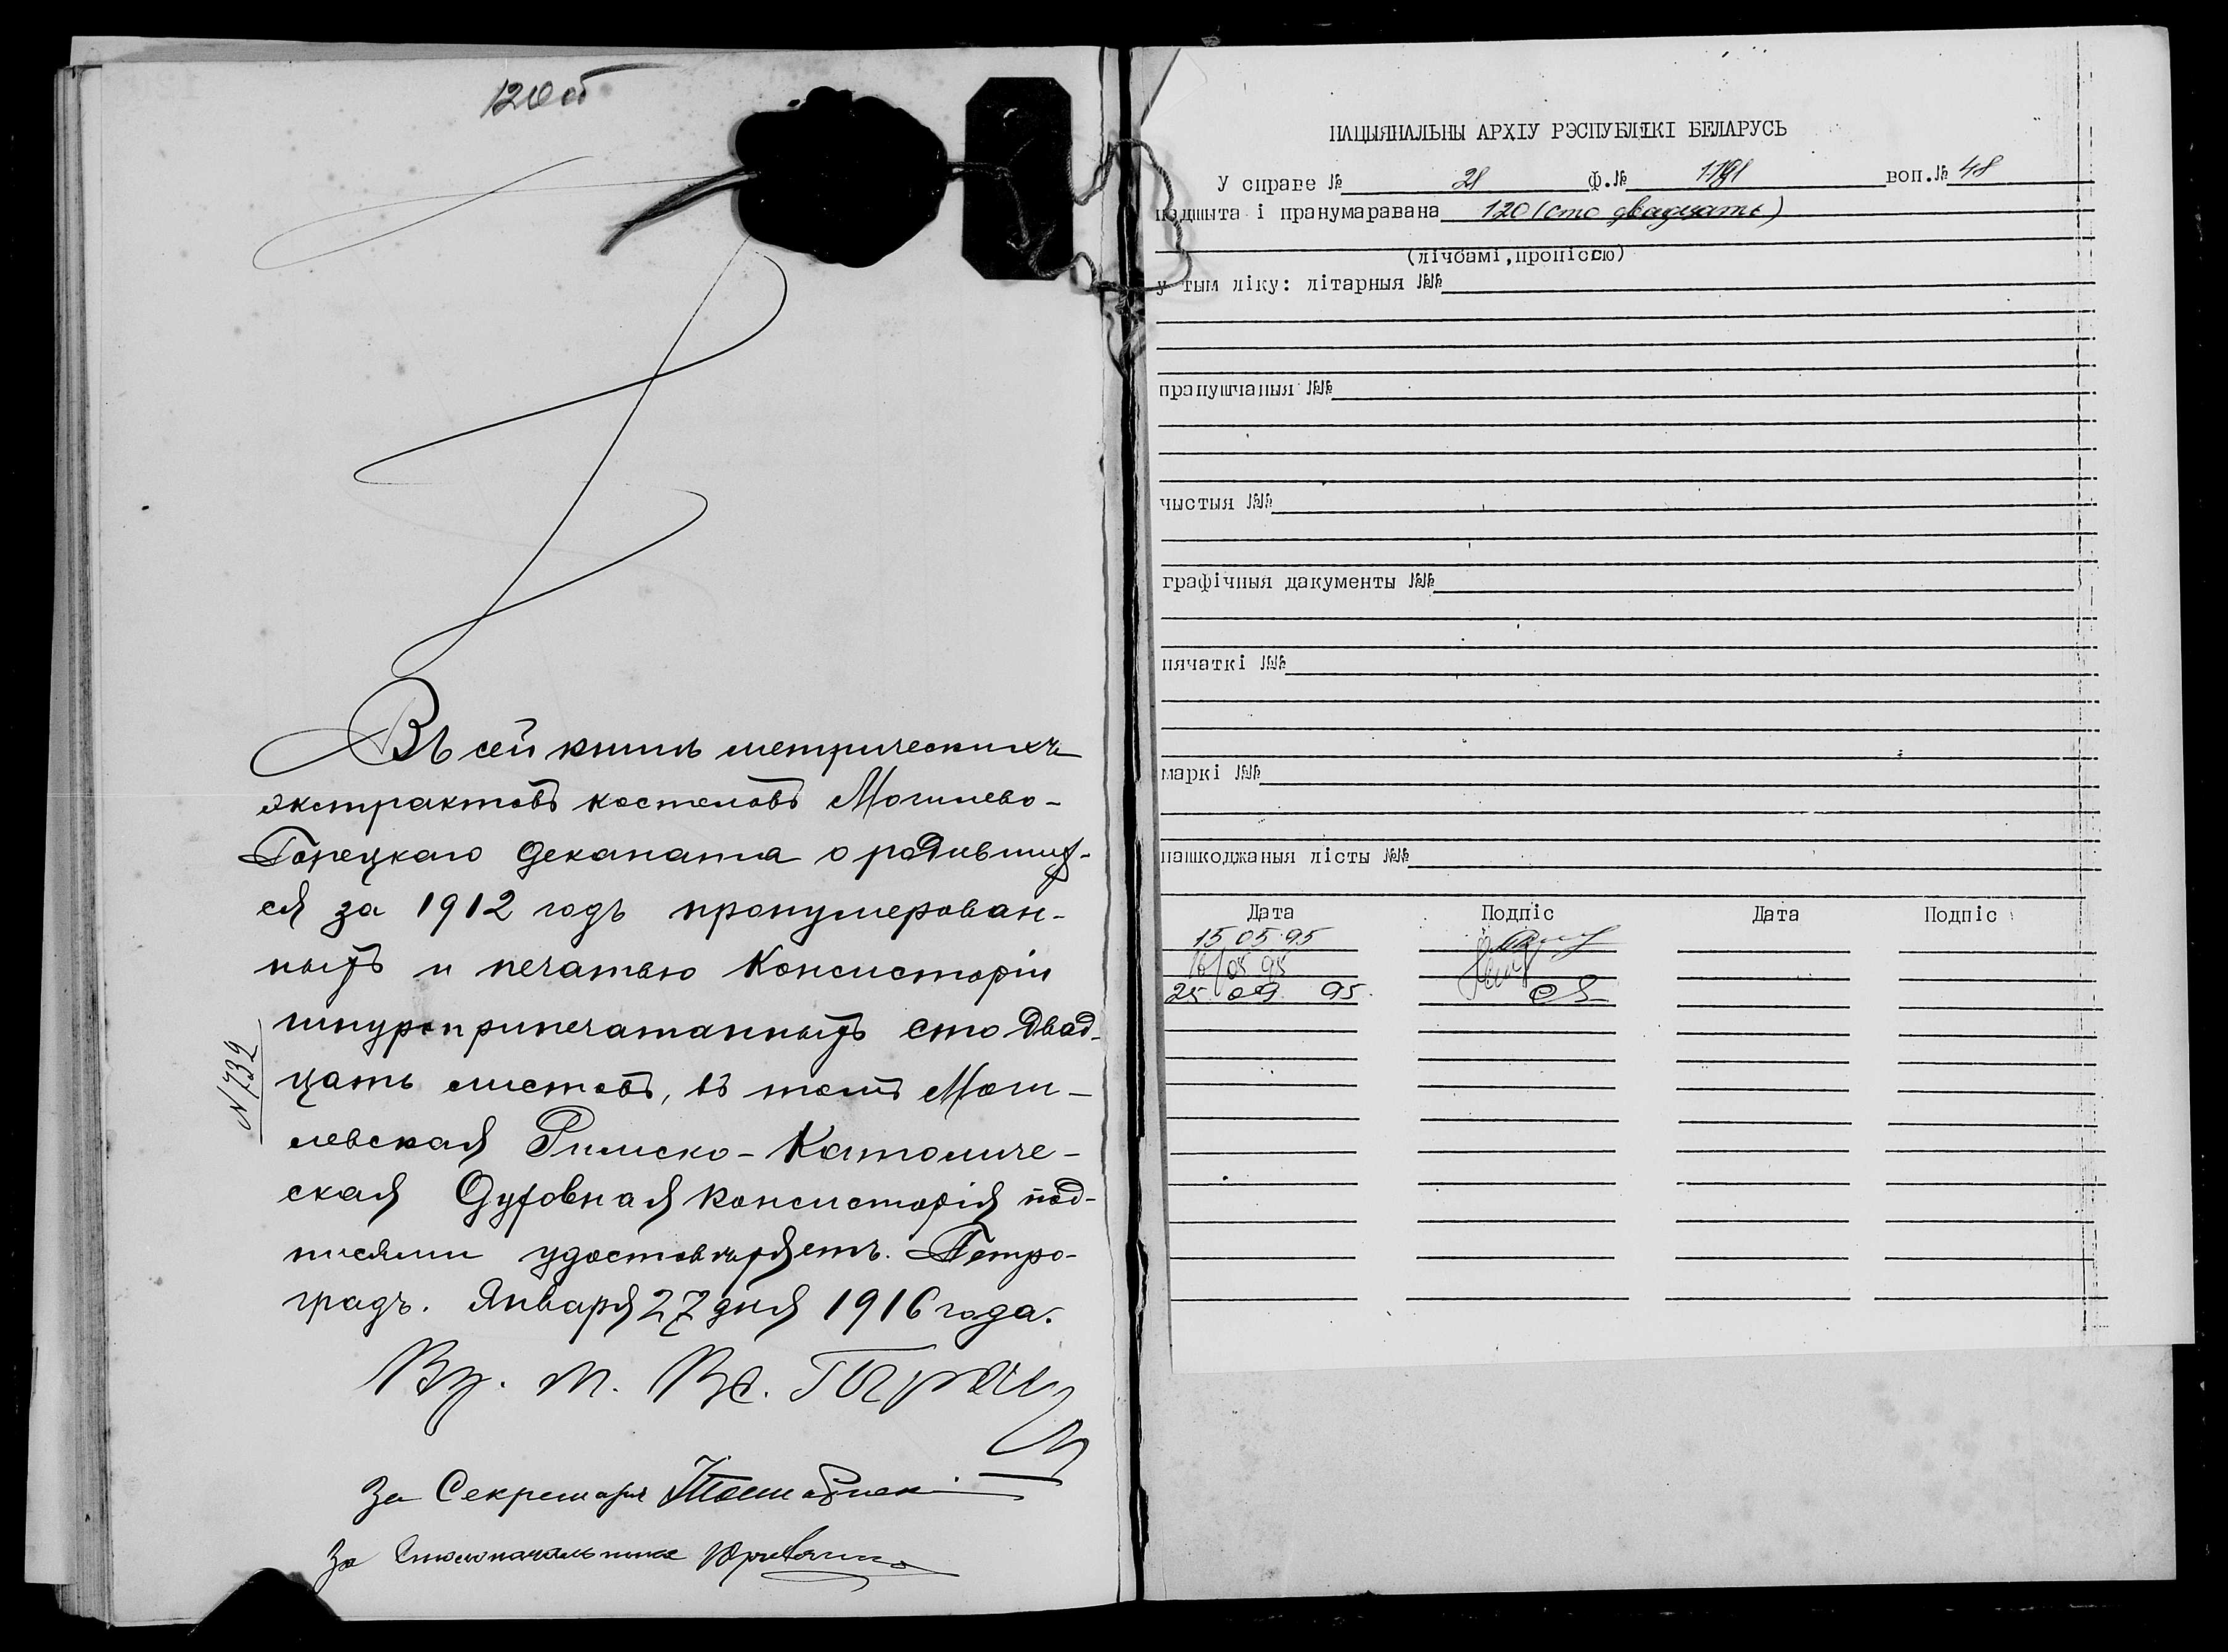 120об
Въ сей книгѣ метрическихъ
экстрактовъ костеловъ Могилево-
Горецкаго деканата о родивших-
ся за 1912 годъ пронумерован-
ныхъ и печатью Консисторіи
шнуроприпечатанныхъ сто двад-
цать листовъ, въ томъ Моги-
левская Римско-Католиче-
ская Духовная Консисторія под-
писями удостовѣряетъ. Петро-
градъ. Января 27 дня 1916 года.
N 732
За Секретаря
За Столоначальника
НАЦЫЯНАЛЬНЫ АРХІУ РЭСПУБЛІКІ БЕЛАРУСЬ
У справе № 28 Ф.№ 1781 воп.№ 48
падшыта і пранумаравана 120 (сто двадцать)
(лічбамі,пропіссю)
у тым ліку: літарныя №№
прапушчаныя №№
чыстыя №№
графічныя дакументы №№
пячаткі №№
маркі №№
пашкоджаныя лісты №№
Дата Подпіс Дата Подпіс
15 05.95
16/05 95
25 09 95.